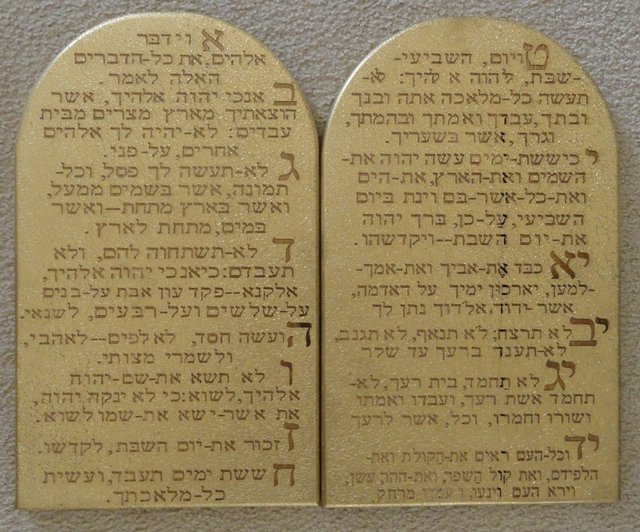 א וידבר
אלהים,את כל-הדברים
האלה לאמר.
ב אנכי יהוה אלהיך, אשר
הוצאתיך מארץ מצרים מבית
עבדים: לא-יהיה לך אלהים
אחרים, על-פני.
ג לא-תעשה לך פסל, וכל-
תמונה, אשר בשמים ממעל,
ואשר בארץ מתחת--ואשר
במים, מתחת לארץ.
ד לא-תשתחוה להם, ולא
תעבדם:כיאנכי יהוה אלהיך,
אלקנא--פקד עון אבת על-בנים
על-שלשים ועל-רבעים, לשנאי.
ה ועשה חסד, לאלפים--לאהבי,
ולשמרי מצותי.
ו לא תשא את-שם-יהוה
אלהיך, לשוא:כי לא ינקה יהוה,
את אשר-ישא את-שמו לשוא.
ז זכור את-יום השבת, לקדשו.
ח ששת ימים תעבד,ועשית
כל-מלאכתך.
ט ויום, השביעי-
-שבת, ליהוה אלהיך: לא-
תעשה כל-מלאכה אתה ובנך
ובתך,עבדך ואמתך ובהמתך,
וגרך,אשר בשעריך.
י כיששת-ימים עשה יהוה את-
השמים ואת-הארץ, את-הים
ואת-כל-אשר-בם וינח ביום
השביעי,על-כן, ברך יהוה
את-יום השבת--ויקדשהו.
יא כבד את-אביך ואת-אמך-
-למען, יארכון ימיך על האדמה,
אשר-יהוה,אלהיך נתן לך
יב לא תרצח; לא תנאף, לא תגנב,
לא-תענה ברעך עד שקר
יג לא תחמד, בית רעך, לא-
תחמד אשת רעך, ועבדו ואמתו
ושורו וחמרו, וכל, אשר לרעך
יד וכל-העם ראים את-הקולת ואת-
הלפידם, ואת קול השפר, ואת-ההר, עשן,
וירא העם וינעו, ויעמדו מרחק.